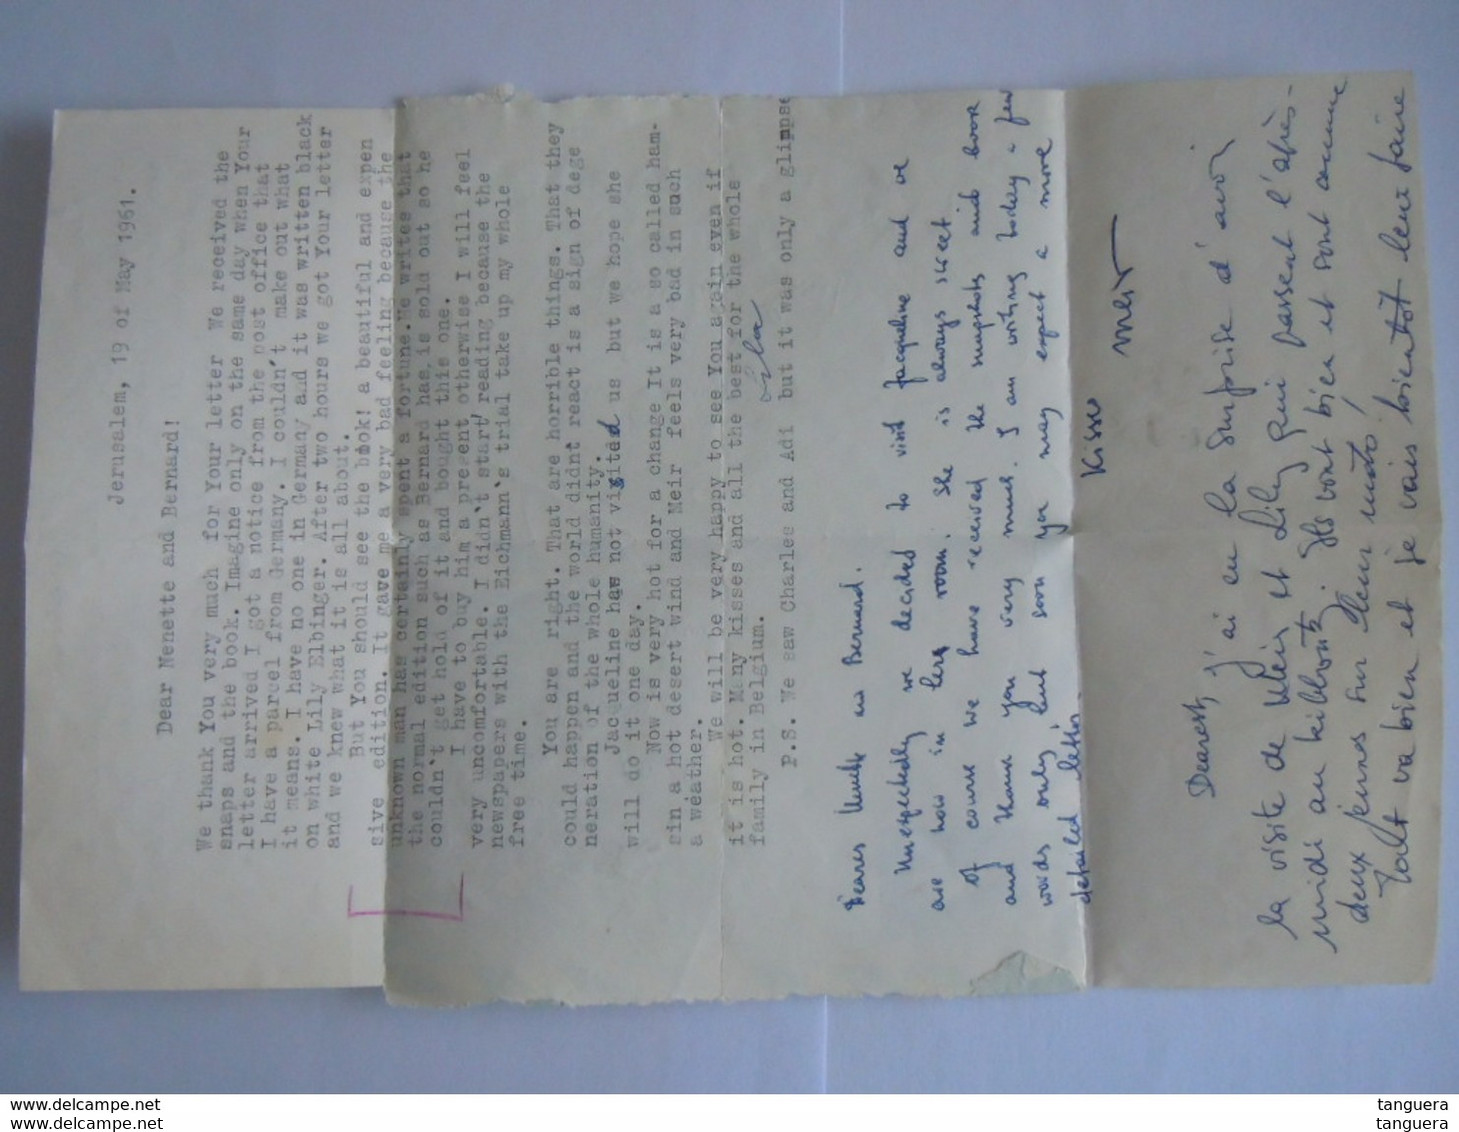 Jerusalem, 19 of May 1961.
Dear Nenette and Bernard!
We thank You very much for Your letter We received the
snaps and the book. Imagine only on the same day when Your
letter arrived I got a notice from the post office that
I have a parcel from Germany. I couldn't make out what
it means. I have no one in Germany and it was written black
on white Lily Elbinger. After two hours we got Your letter
and we knew what it is all about.
But You should see the book! a beautiful and expen
sive edition. It gave me a very bad feeling because the
unknown man has certainly spent a fortune. He writes that
the normal edition such as Bernard has is sold out so he
couldn't get hold of it and bought this one.
I have to buy him a present otherwise I will feel
very uncomfortable. I didn't start reading because the
newspapers with the Eichmann's trial take up my whole
free time.
You are right. That are horrible things. That they
could happen and the world didnt react is a sign of dege
neration of the whole humanity.
Jacqueline has not visited us but we hope she
will do it one day.
Now is very hot for a change It is a so called ham-
sin a hot desert wind and Meir feels very bad in such
a weather.
We will be very happy to see You again even if
it is hot. Many kisses and all the best for the whole
family in Belgium.
P.S. We saw Charles and Adi but it was only a glimpse
and Bernard.
Unexpectedly we decided to visit Jacqueline and we
are now in her room. She is always sweet
of course we have received the snapshots and book
and thank you very much. I am writing today a few
words only but soon you may expect a more
detailed letter.
Kisses
Meir
Dearest, j'ai eu la surprise d'avoir
la visite de Meir et Lily qui passent l'après-
midi au kibboutz. Ils vont bien et sont comme
deux jeunes sur leur moto,
Tout va bien et je vais bientôt leur faire
tanguera
tanguera
www.delcampe.net
www.delcampe.net